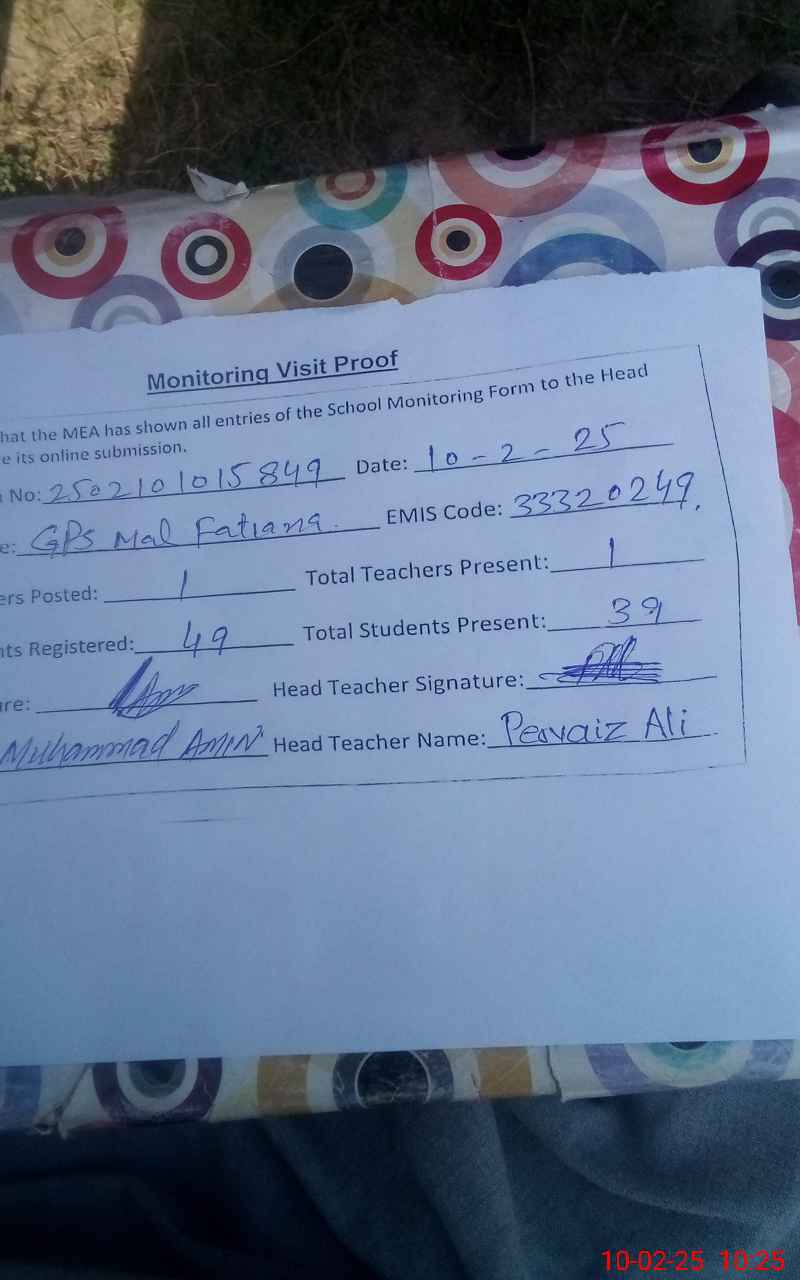 Monitoring Visit Proof
hat the MEA has shown all entries of the School Monitoring Form to the Head
e its online submission.
No: 2502101015849 Date: 10-2-25
e: GPS Mal Fatiana. EMIS Code: 33320249.
ers Posted: 1 Total Teachers Present: 1
nts Registered: 49 Total Students Present: 39
re: Head Teacher Signature:
Muhammad AMIN Head Teacher Name: Pervaiz Ali
10-02-25 10:25